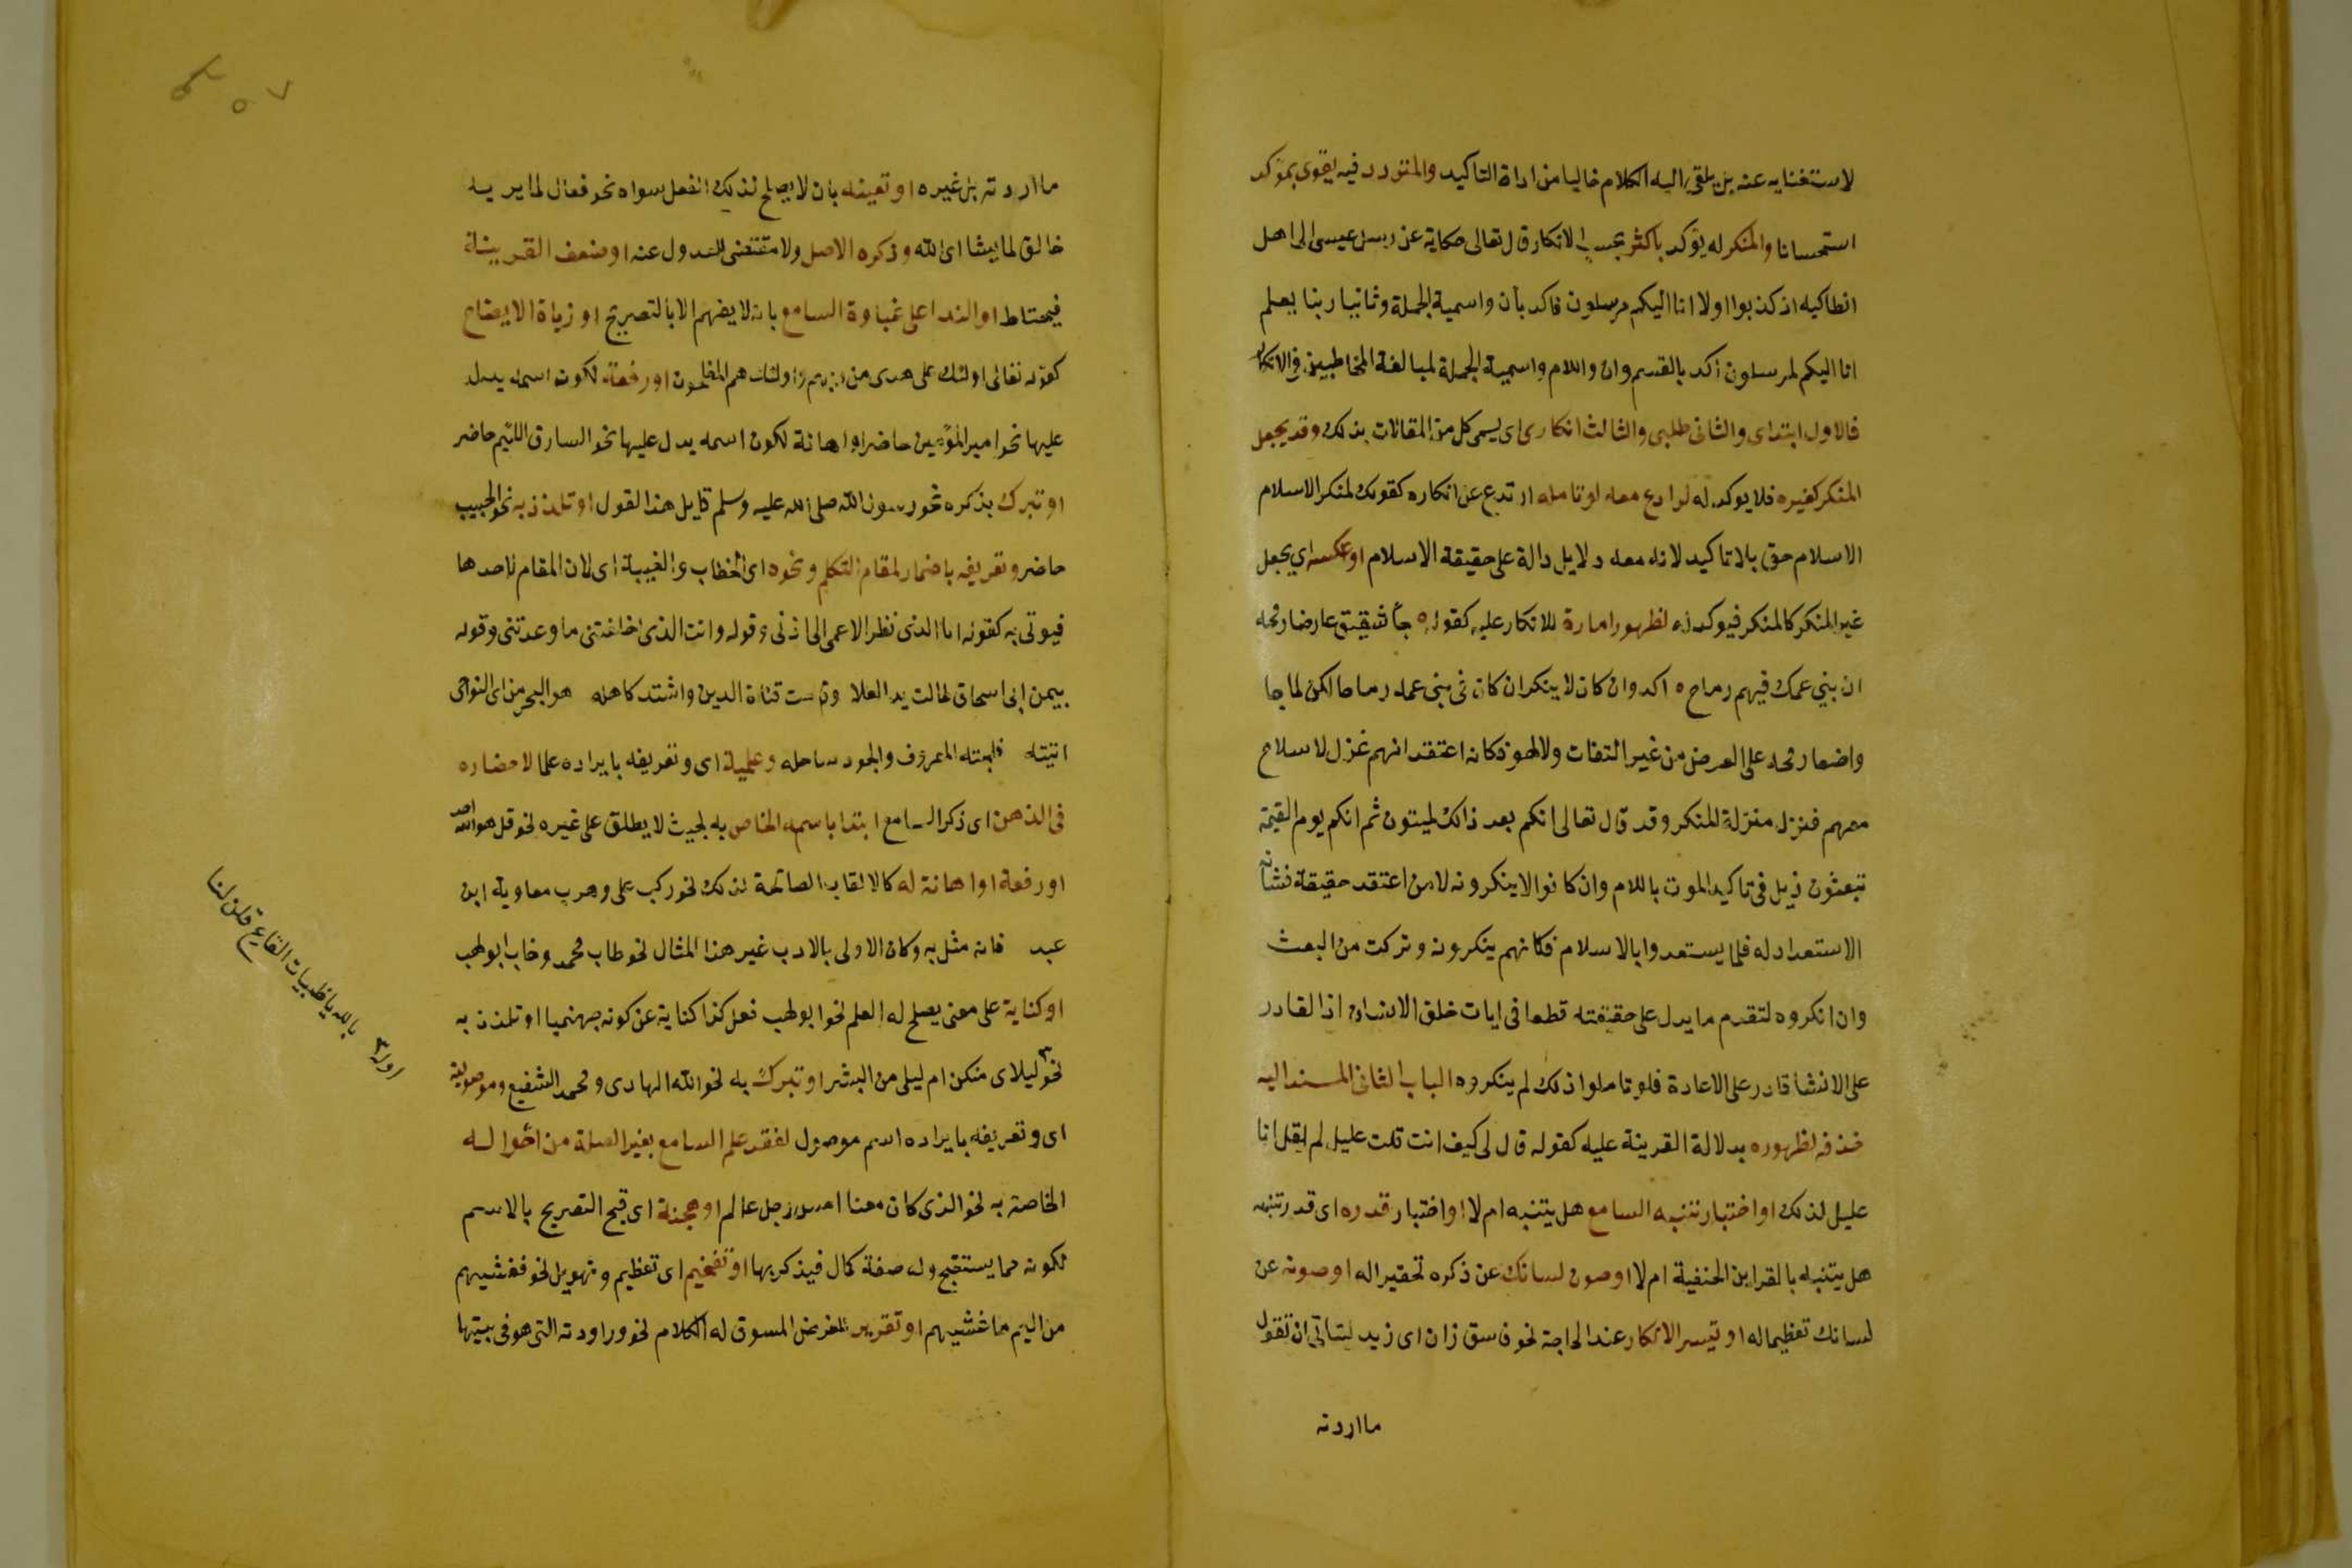 لاستغنايه عنه بل يلقى اليه الكلام خاليا من اداة التاكيد والمتردد فيه يقوى بمؤكد
استحسانا والمنكر له يؤكد باكثر بحسب الانكار قال تعالى حكاية عن رسل عيسى الى اهل
انطاكيه اذ كذبوا اولا انا اليكم مرسلون فاكد بأن واسمية الجملة وثانيا ربنا يعلم
انا اليكم لمرسلون اكد بالقسم وان واللام واسمية الجملة لمبالغة المخاطبين في الانكار
فالاول ابتداى والثانى طلبى والثالث انكارى اى يسمى كل من المقالات بذلك وقد يجعل
المنكر كغيره فلا يوكد له لرادع معه لو تامله ارتدع عن انكاره كقولك لمنكر الاسلام
الاسلام حق بلا تاكيد لانه معه دلايل دالة على حقيقة الاسلام او عكسه اي يجعل
غير المنكر كالمنكر فيوكد له لظهور امارة للانكار عليه كقوله جأ شقيق عارضا رمحه
ان بني عمك فيهم رماح ه اكد وان كان لا ينكر ان كان فى بنى عمه رماحا لكن لما جا
واضعا رمحه على العرض من غير التفات ولا لهو فكانه اعتقد انهم عزل لا سلاح
معهم فنزل منزلة المنكر وقد قال تعالى انكم بعد ذالك لميتون ثم انكم يوم القيمة
تبعثون نزيل فى تاكيد الموت باللام وان كانوا لا ينكرونه لان من اعتقد حقيقة فشأنه
الاستعداد له فلما يستعدوا بالاسلام فكانهم ينكرونه وتركت من البعث
وان انكروه لتقدم ما يدل على حقيقته قطعا فى ايات خلق الانسان اذ القادر
على الانشأ قادر على الاعادة فلو تاملوا ذلك لم ينكروه الباب الثانى المسند اليه
حذفه لظهوره بدلالة القرينة عليه كقوله قال لى كيف انت قلت عليل لم يقل انا
عليل لذلك او اختبار تنبه السامع هل يتنبه ام لا او اختبار قدره اى قدر تنبهه
هل يتنبه بالقراين الخفية ام لا او صون لسانك عن ذكره تحقيرا له او صونه عن
لسانك تعظيما له او تيسر الانكار عند الحاجة نحو فاسق زان اى زيد ليتاتى ان تقول
ما اردته
ما اردته بل غيره او تعينه بان لا يصلح لذلك الفعل سواه نحو فعال لما يريد
خالق لما يشا اى الله وذكره الاصل ولا مقتضى للعدول عنه او ضعف القرينة
فيحتاط او الندا على غباوة السامع بانه لا يفهم الا بالتصريح او زياة الايضاح
كقوله تعالى اولئك على هدى من ربهم واولئك هم المفلحون او رفعة لكون اسمه يدل
عليها نحو امير المؤمنين حاضر او اهانة لكون اسمه يدل عليها نحو السارق اللئيم حاضر
او تبرك بذكره نحو رسول الله صلى الله عليه وسلم قايل هذا القول او تلذذ به نحو الحبيب
حاضر وتعريفه باضمار لمقام التكلم ونحوه اى الخطاب والغيبة اى لان المقام لاحدها
فيوتى به كقوله انا الذى نظر الاعمى الى اذنى وقوله وانت الذى اخلفتنى ما وعدتنى وقوله
بيمن ابى اسحاق طالت يد العلا وقامت قناة الدين واشتد كاهله هو البحر من اى النواحى
اتيته فلجته المعروف والجود ساحله وعلمية اى وتعريفه بايراده علما لاحضاره
فى الذهن اى ذكر السامع ابتدا باسمه الخاص به بحيث لا يطلق على غيره نحو قل هو الله احد
او رفعة او اهانة له كالالقاب الصالحة لذلك نحو ركب على وهرب معاوية ابن
عبد فانه مثل به وكان الاولى بالادب غير هذا المثال نحو طاب محمد وخاب ابو لهب
او كناية على معنى يصلح له العلم نحو ابو لهب فعل كذا كناية عن كونه جهنميا او تلذذ به
نحو ليلاى منكن ام ليلى من البشر او تبرك به نحو الله الهادى ومحمد الشفيع وموصولية
اى وتعريفه بايراده اسم موصول لفقد علم السامع بغير الصلة من احواله
الخاصة به نحو الذى كان معنا امس رجل عالم او هجنة اى قبح التصريح بالاسم
لكونه مما يستقبح وله صفة كمال فيذكر بها او تفخيم اى تعظيم وتهويل نحو فغشيهم
من اليم ما غشيهم او تقرير للغرض المسوق له الكلام نحو وراودته التى هو فى بيتها
اوله بالله يا ظبيات القاع قلن لنا